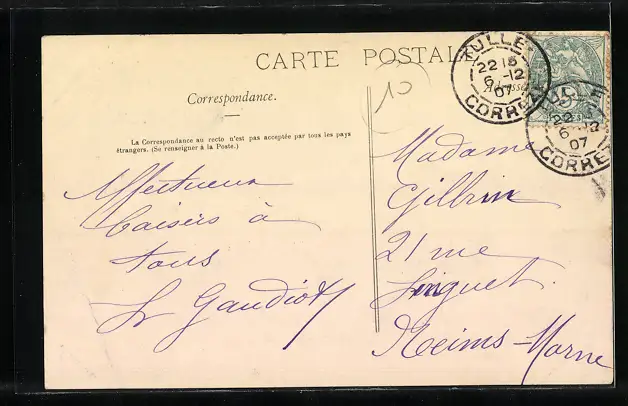 CARTE POSTALE
Correspondance.
Adresse
La Correspondance au recto n'est pas acceptée par tous les pays
étrangers. (Se renseigner à la Poste.)
10
TULLE
22 15
6 -12
07
CORRÈZE
TULLE
22
6 -12
07
CORRÈZE
5
Affectueux
baisers à
tous
Gaudiot
Madame
Gilbrin
21 rue
Linguet
Reims-Marne